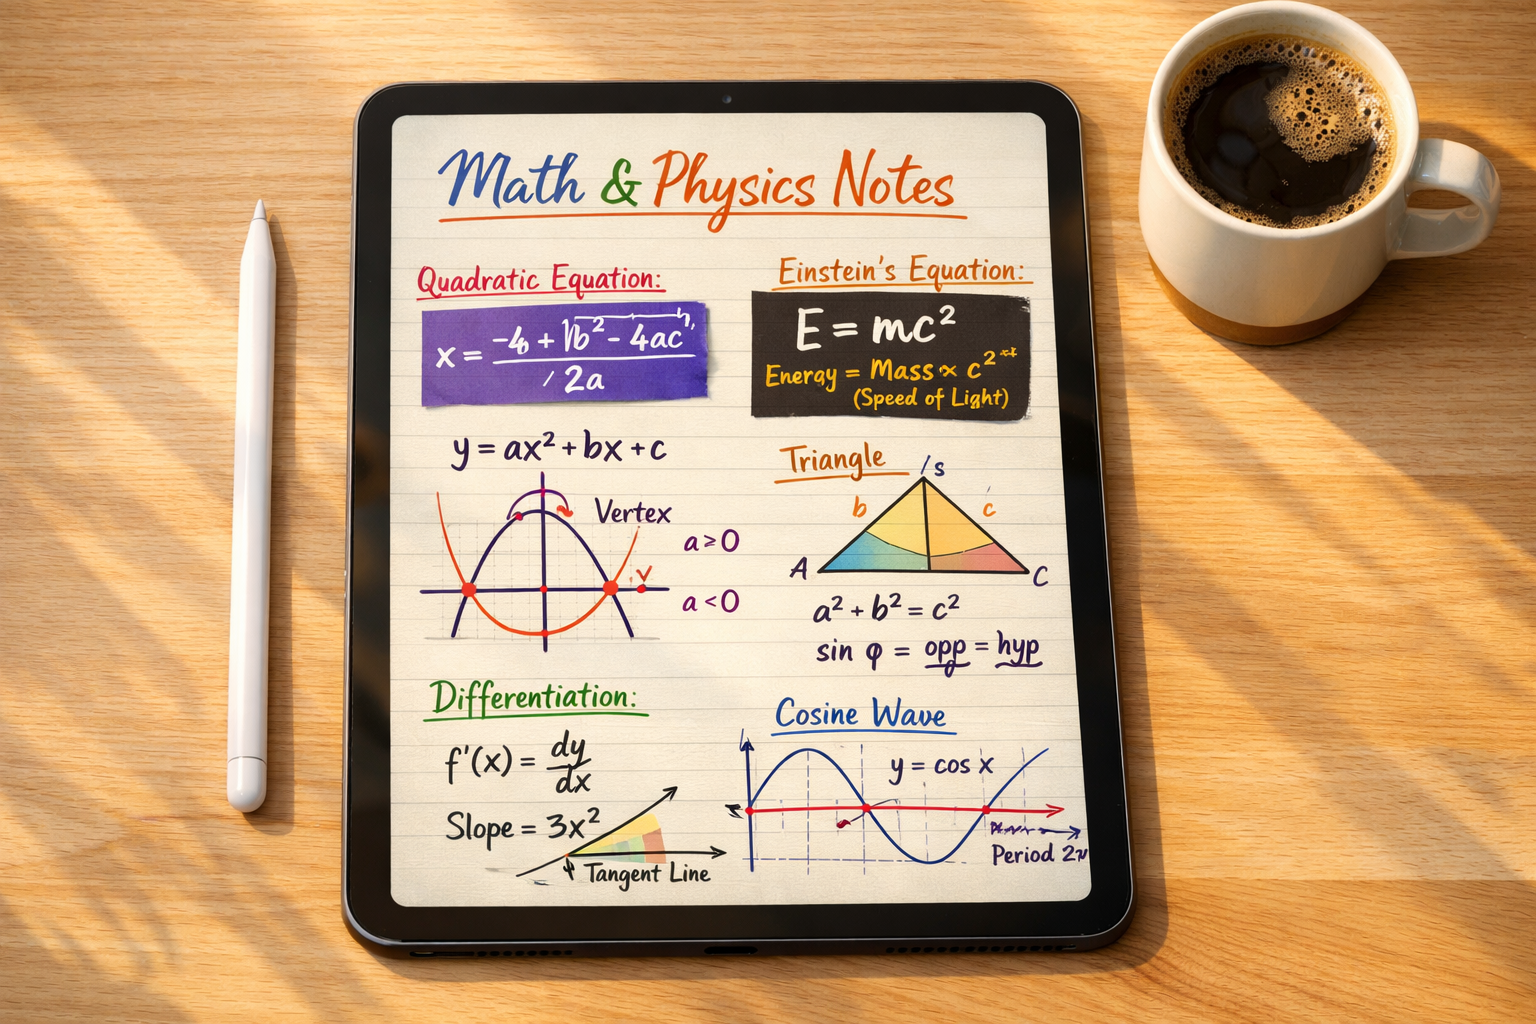 Math & Physics Notes
Quadratic Equation:
x = -4 + √b² - 4ac
/ 2a
y = ax² + bx + c
Vertex
a ≥ 0
V
a < 0
Einstein's Equation:
E = mc²
Energy = Mass × c²
(Speed of Light)
Triangle
/s
b
c
A
C
a² + b² = c²
sin φ = opp = hyp
Differentiation:
f'(x) = dy
dx
Slope = 3x²
Tangent Line
Cosine Wave
y = cos x
Period 2π